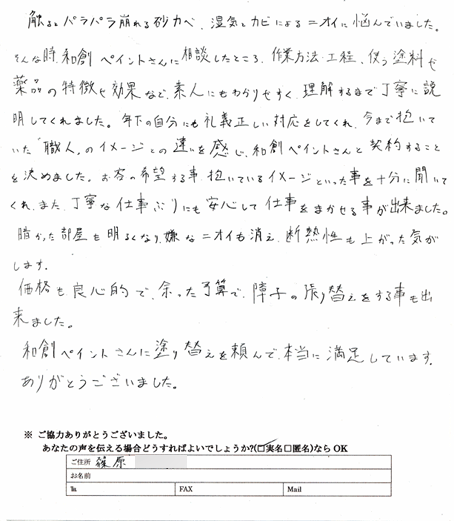 触るとパラパラ崩れる砂カベ、湿気とカビによるニオイに悩んでいました。
そんな時、和創ペイントさんに相談したところ、作業方法・工程、使う塗料や
薬品の特徴や効果など、素人にもわかりやすく、理解するまで丁寧に説
明してくれました。年下の自分にも礼義正しい対応をしてくれ、今まで抱いて
いた「職人」のイメージとの違いを感じ、和創ペイントさんと契約すること
を決めました。お客の希望する事、抱いているイメージといった事を十分に聞いて
くれ、また、丁寧な仕事ぶりにも安心して仕事をまかせる事が出来ました。
暗かった部屋も明るくなり、嫌なニオイも消え、断熱性も上がった気が
します。
価格も良心的で、余った予算で、障子の張り替えをする事も出
来ました。
和創ペイントさんに塗り替えを頼んで、本当に満足しています。
ありがとうございました。
※ ご協力ありがとうございました。
あなたの声を伝える場合どうすればよいでしょうか?(□実名□匿名)ならOK
ご住所 篠原
お名前
℡ FAX Mail